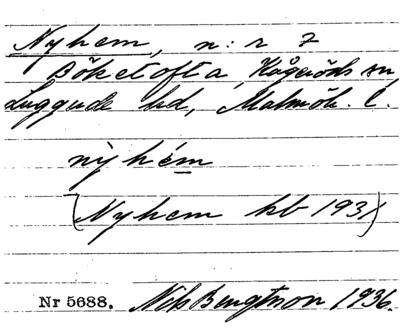 Nyhem, n:r 7
Böketofta, Kågeröds sn,
Luggude hd, Malmöh. l.
nỳhém
(Nyhem kb 1931)
Nr 5688. Nils Bengtsson 1936.